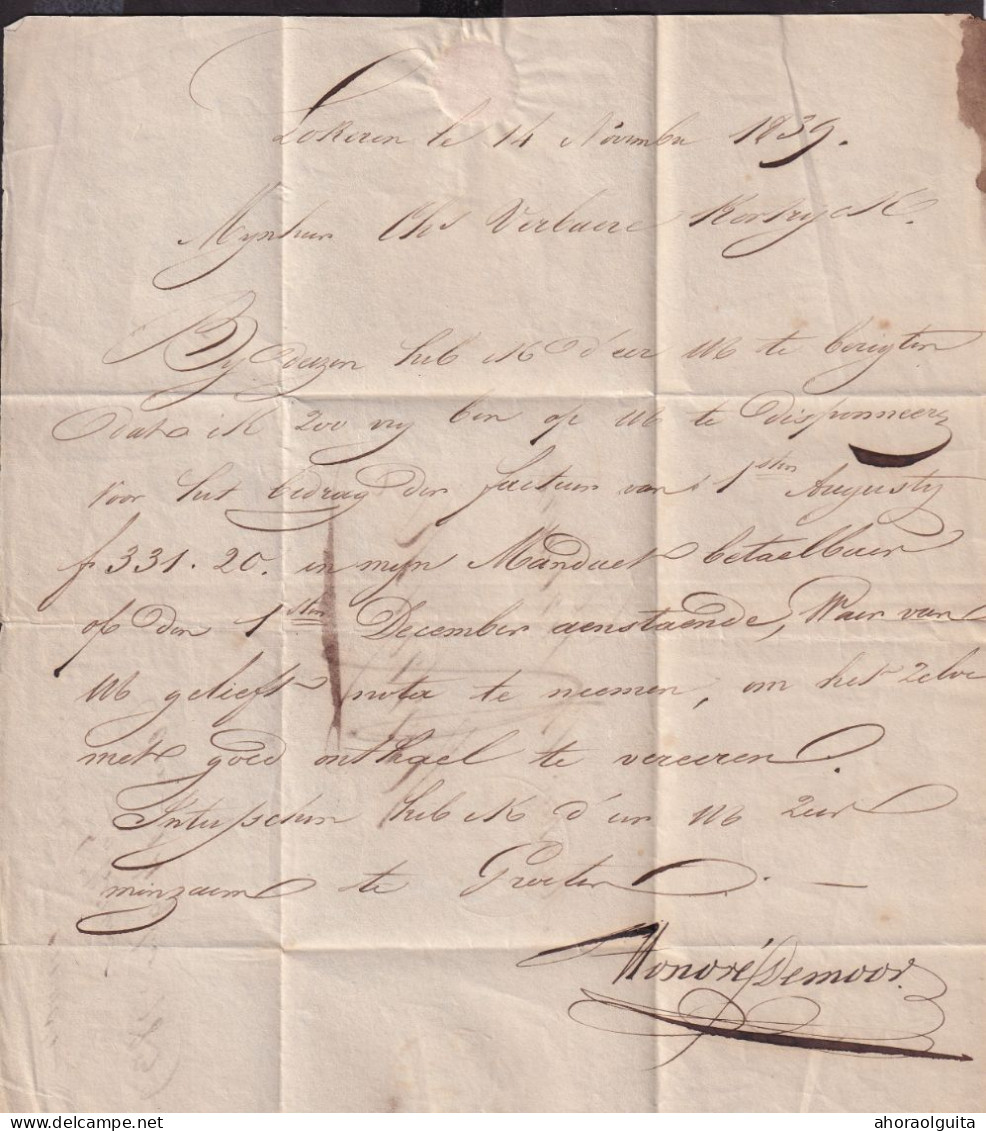 Lokeren le 14 Novembre 1839.
Mynheer Chs Verlaere Kortryck.
By deezen heb ik d'eer UE te berigten
dat ik zoo vry ben op UE te disponneeren
voor het bedrag der factuur van 1sten Augusty
fr 331.20. in mijn Mandaet betaelbaer
op den 1sten December aenstaende, Waer van
UE gelieft nota te neemen, om het zelve
met goed onthael te vereeren.
Intusschen heb ik d'eer UE zeer
minzaem te Groeten. —
Honoré Demoor.
ahoraolguita